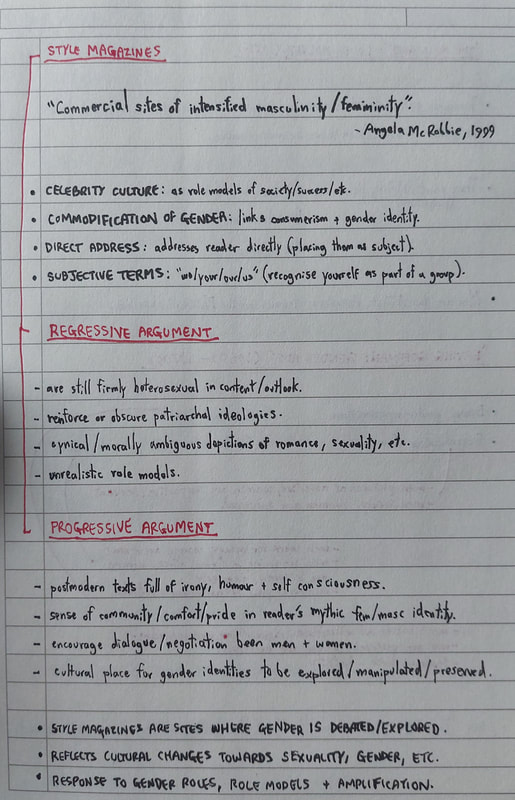 STYLE MAGAZINES
"Commercial sites of intensified masculinity/femininity".
- Angela McRobbie, 1999
• CELEBRITY CULTURE: as role models of society/success/etc.
• COMMODIFICATION OF GENDER: links consumerism + gender identity.
• DIRECT ADDRESS: addresses reader directly (placing them as subject).
• SUBJECTIVE TERMS: "we/your/our/us" (recognise yourself as part of a group).
REGRESSIVE ARGUMENT
- are still firmly heterosexual in content/outlook.
- reinforce or obscure patriarchal ideologies.
- cynical/morally ambiguous depictions of romance, sexuality, etc.
- unrealistic role models.
PROGRESSIVE ARGUMENT
- postmodern texts full of irony, humour + self consciousness.
- sense of community/comfort/pride in reader's mythic fem/masc identity.
- encourage dialogue/negotiation been men + women.
- cultural place for gender identities to be explored/manipulated/preserved.
• STYLE MAGAZINES ARE SITES WHERE GENDER IS DEBATED/EXPLORED.
• REFLECTS CULTURAL CHANGES TOWARDS SEXUALITY, GENDER, ETC.
• RESPONSE TO GENDER ROLES, ROLE MODELS + AMPLIFICATION.